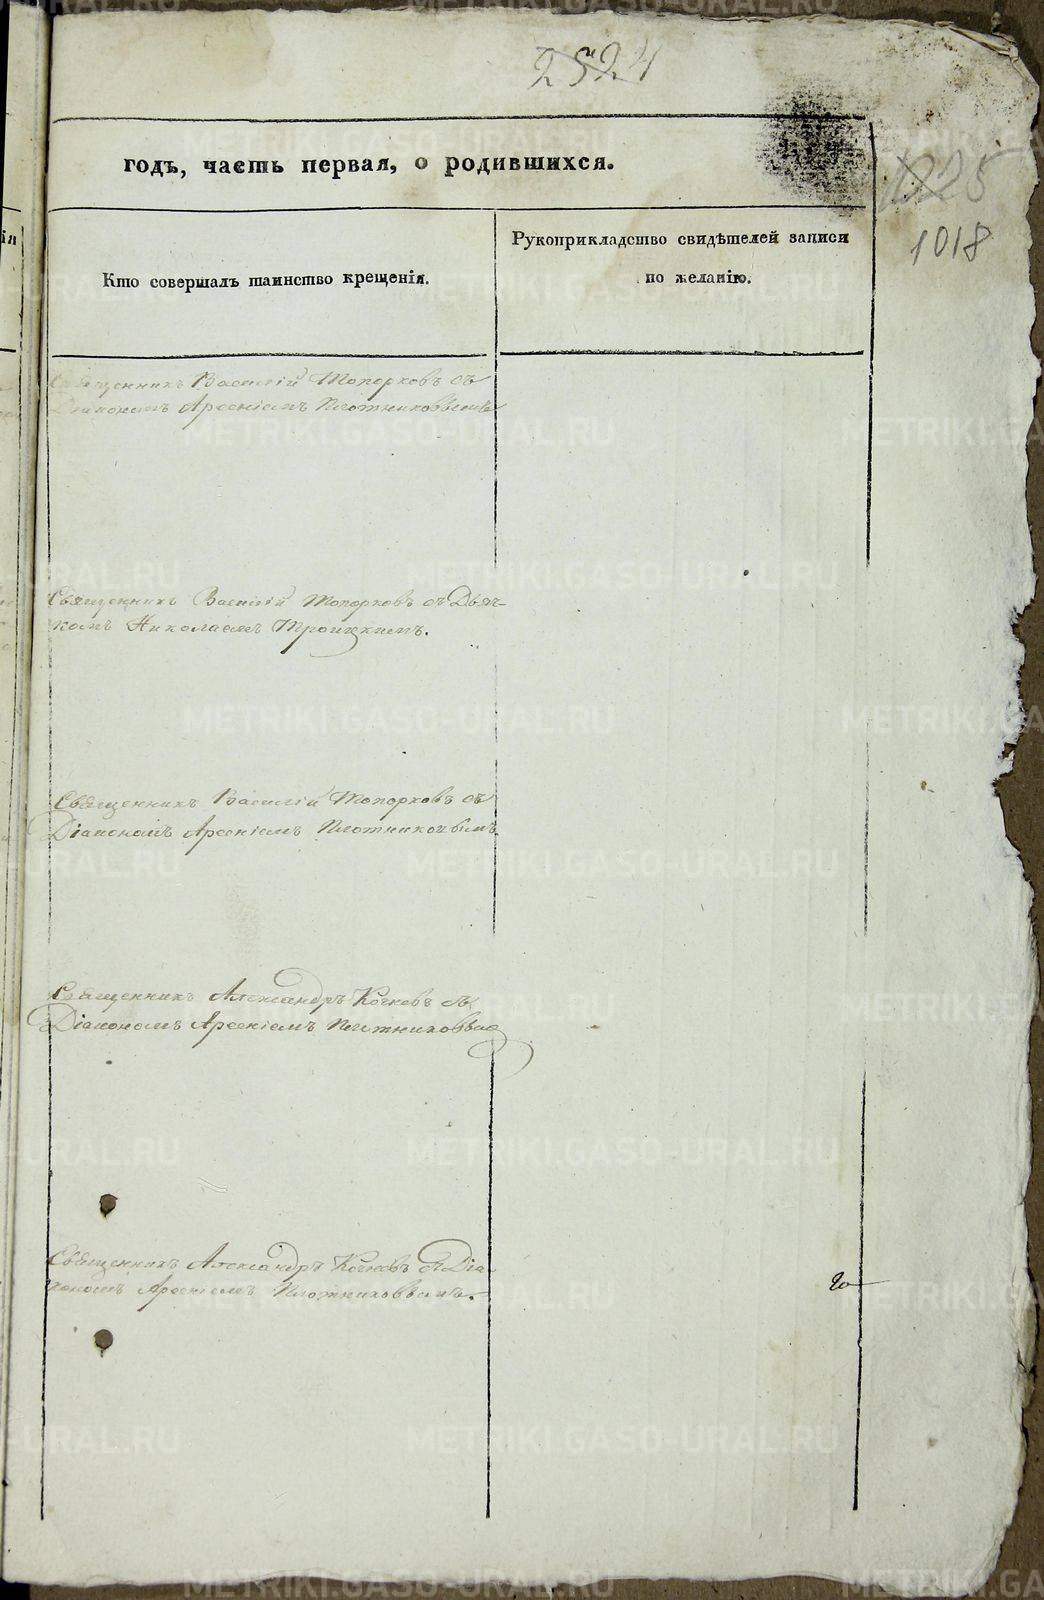 2524
годъ, часть первая, о родившихся.
1225
1018
Кто совершалъ таинство крещенія.
Рукоприкладство свидѣтелей записи
по желанію.
Священникъ Василій Топорковъ съ
Діакономъ Арсеніемъ Плотниковымъ
Священникъ Василій Топорковъ съ Дьяч-
комъ Николаемъ Троицкимъ.
Священникъ Василій Топорковъ съ
Діакономъ Арсеніемъ Плотниковымъ
Священникъ Александръ Кочковъ съ
Діакономъ Арсеніемъ Плотниковымъ
Священникъ Александръ Кочковъ съ Діа-
кономъ Арсеніемъ Плотниковымъ.
METRIKI.GASO-URAL.RU